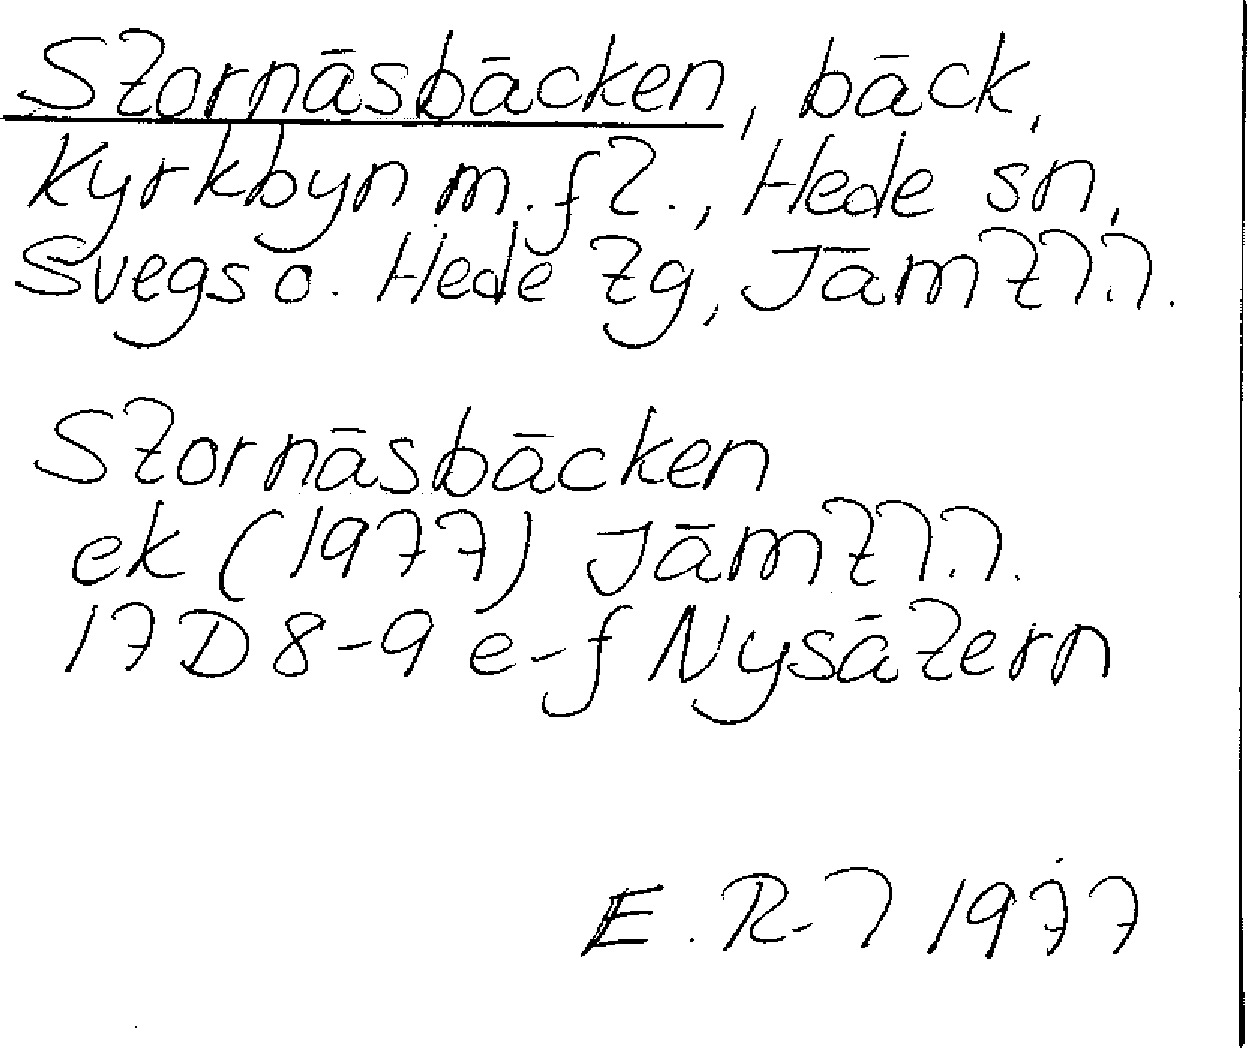 Stornäsbäcken, bäck,
Kyrkbyn m.fl., Hede sn,
Svegs o. Hede tg, Jämtl.l.
Stornäsbäcken
ek (1977) Jämtl.l.
17D 8-9 e-f Nysätern
E. R-l 1977